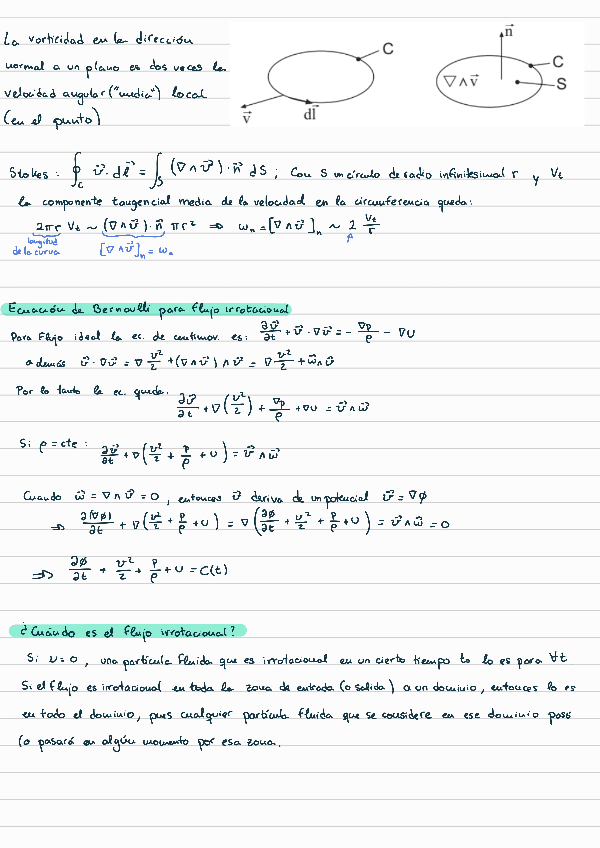 La vorticidad en la dirección
normal a un plano es dos veces la
velocidad angular ("media") local
(en el punto)
C
v⃗
dl⃗
n⃗
C
S
∇∧v⃗
Stokes: ∮_C v⃗·dl⃗ = ∫_S (∇∧v⃗)·n⃗ dS ; Con S un círculo de radio infinitesimal r y Vt
la componente tangencial media de la velocidad en la circunferencia queda:
2πr Vt ~ (∇∧v⃗)·n⃗ πr² ⇒ ωn = [∇∧v⃗]n ~ 2 Vt/r
longitud
de la curva
[∇∧v⃗]n = ωn
Ecuación de Bernoulli para flujo irrotacional
Para flujo ideal la ec. de cantimov. es: ∂v⃗/∂t + v⃗·∇v⃗ = -∇p/ρ - ∇U
además v⃗·∇v⃗ = ∇ v²/2 + (∇∧v⃗)∧v⃗ = ∇ v²/2 + ω⃗∧v⃗
Por lo tanto la ec. queda:
∂v⃗/∂t + ∇(v²/2) + ∇p/ρ + ∇U = v⃗∧ω⃗
Si ρ = cte: ∂v⃗/∂t + ∇(v²/2 + p/ρ + U) = v⃗∧ω⃗
Cuando ω⃗ = ∇∧v⃗ = 0, entonces v⃗ deriva de un potencial v⃗ = ∇ϕ
⇒ ∂(∇ϕ)/∂t + ∇(v²/2 + p/ρ + U) = ∇(∂ϕ/∂t + v²/2 + p/ρ + U) = v⃗∧ω⃗ = 0
⇒ ∂ϕ/∂t + v²/2 + p/ρ + U = C(t)
¿Cuándo es el flujo irrotacional?
Si ν=0, una partícula fluida que es irrotacional en un cierto tiempo to lo es para ∀t
Si el flujo es irrotacional en toda la zona de entrada (o salida) a un dominio, entonces lo es
en todo el dominio, pues cualquier partícula fluida que se considere en ese dominio pasó
(o pasará en algún momento por esa zona.